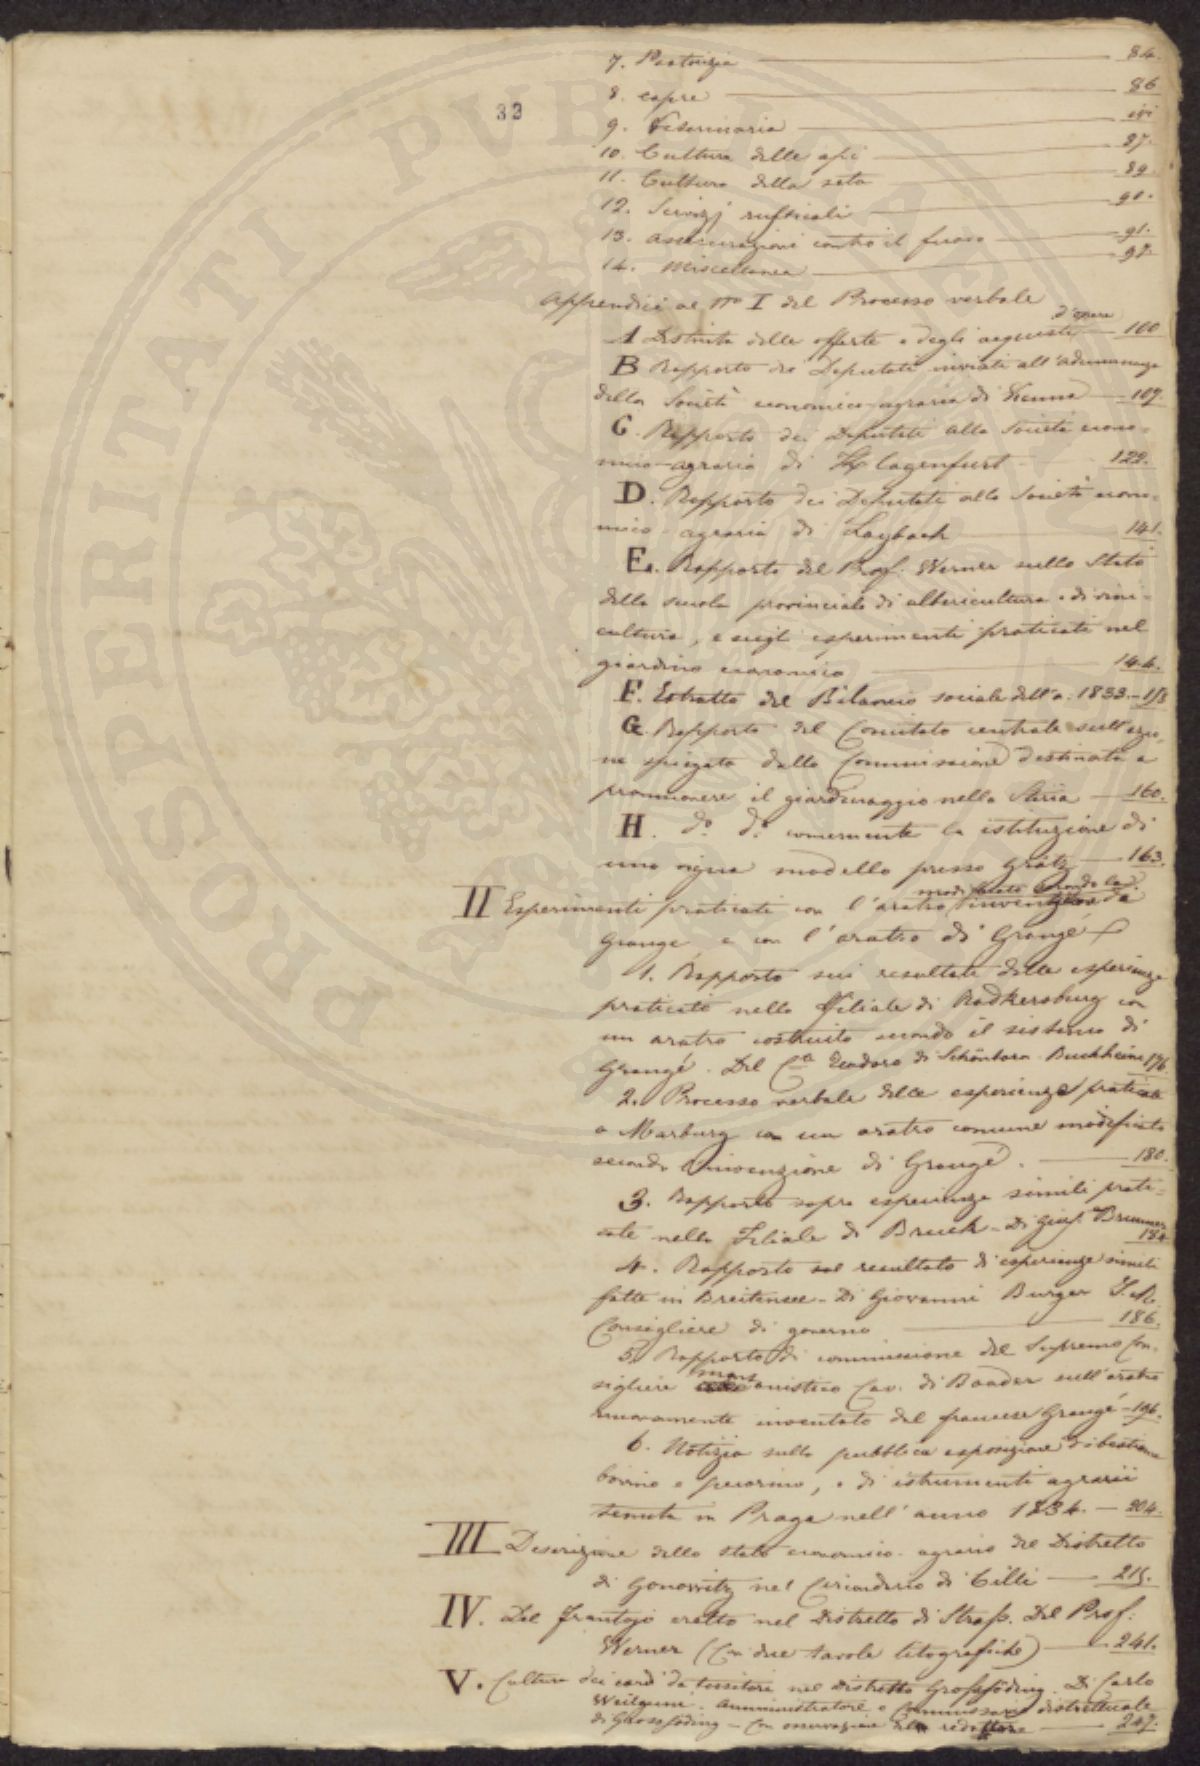 7. Pastorizia — 84.
8. capre — 86
33
9. Veterinaria — ivi
10. Cultura delle api — 87.
11. Cultura della seta — 89.
12. Servizj rusticali — 90.
13. assicurazioni contro il fuoco — 91.
14. Miscellanea — 97.
Appendici al No I del Processo verbale
A Distinta delle offerte e degli acquisti d'opere — 100
B Rapporto dei Deputati inviati all'adunanza
della Società economico-agraria di Vienna — 107.
C. Rapporto dei Deputati alla Società econo-
mico-agraria di Klagenfurt — 122.
D. Rapporto dei Deputati alla Società econo-
mico-agraria di Laybach — 141.
E. Rapporto del Prof. Werner sullo Stato
della scuola provinciale di albericultura e di vini-
cultura, e sugli esperimenti praticati nel
giardino economico — 144.
F. Estratto del Bilancio sociale dell'a. 1833. —
G. Rapporto del Comitato centrale sull'azio-
ne spiegata dalla Commissione destinata a
promuovere il giardinaggio nella Stiria — 160.
H. do. do. concernente la istituzione di
una vigna modello presso Grätz — 163.
II Esperimenti praticati con l'aratro modificato secondo la invenzione da
Grangé e con l'aratro di Grangé
1. Rapporto sui resultati delle esperienze
praticate nella Filiale di Radkersburg con
un aratro costruito secondo il sistema di
Grangé. Del Cte Teodoro di Schönborn Buchheim 176.
2. Processo verbale delle esperienze praticate
a Marburg con un aratro comune modificato
secondo l'invenzione di Grangé. — 180.
3. Rapporto sopra esperienze simili prati-
cate nella Filiale di Bruck - Di Gius. Brunner
184
4. Rapporto sul resultato di esperienze simili
fatte in Breitensee - Di Giovanni Burger I. R.
Consigliere di governo — 186.
5. Rapporto di commissione del Supremo Con-
sigliere montanistico Cav. di Baader sull'aratro
nuovamente inventato dal francese Grangé — 196.
6. Notizia sulla pubblica esposizione di bestiame
bovino e pecorino, e di istrumenti agrarii
tenuta in Praga nell'anno 1834. — 204.
III Descrizione dello stato economico-agrario del Distretto
di Gonowitz nel Circondario di Cilli — 215.
IV. Del Frantojo eretto nel Distretto di Strass. Del Prof.
Werner (Con due tavole litografiche) — 241.
V. Cultura dei cardi da tessitori nel Distretto Grosssöding. Di Carlo
Amministratore e Commissario distrettuale
di Grosssöding - Con osservazioni della redazione — 247.
PROSPERITATI PUBLICAE